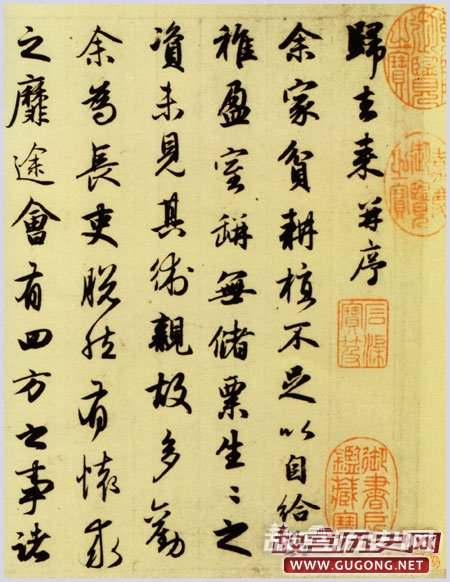 歸去来并序
余家貧耕植不足以自給
稚盈室缾無儲粟生〻之
資未見其術親故多勸
余為長吏脱然有懷求
之靡途會有四方之事諸
御書房
鑑藏寶
故宫历史网
WWW.GUGONG.NET